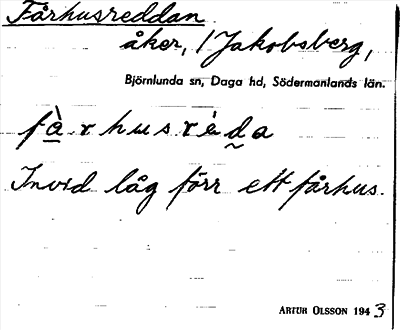 Fårhusreddan
åker, / Jakobsberg,
Björnlunda sn, Daga hd, Södermanlands län.
fà̱rhusrèda
Invid låg förr ett fårhus.
ARTUR OLSSON 1943